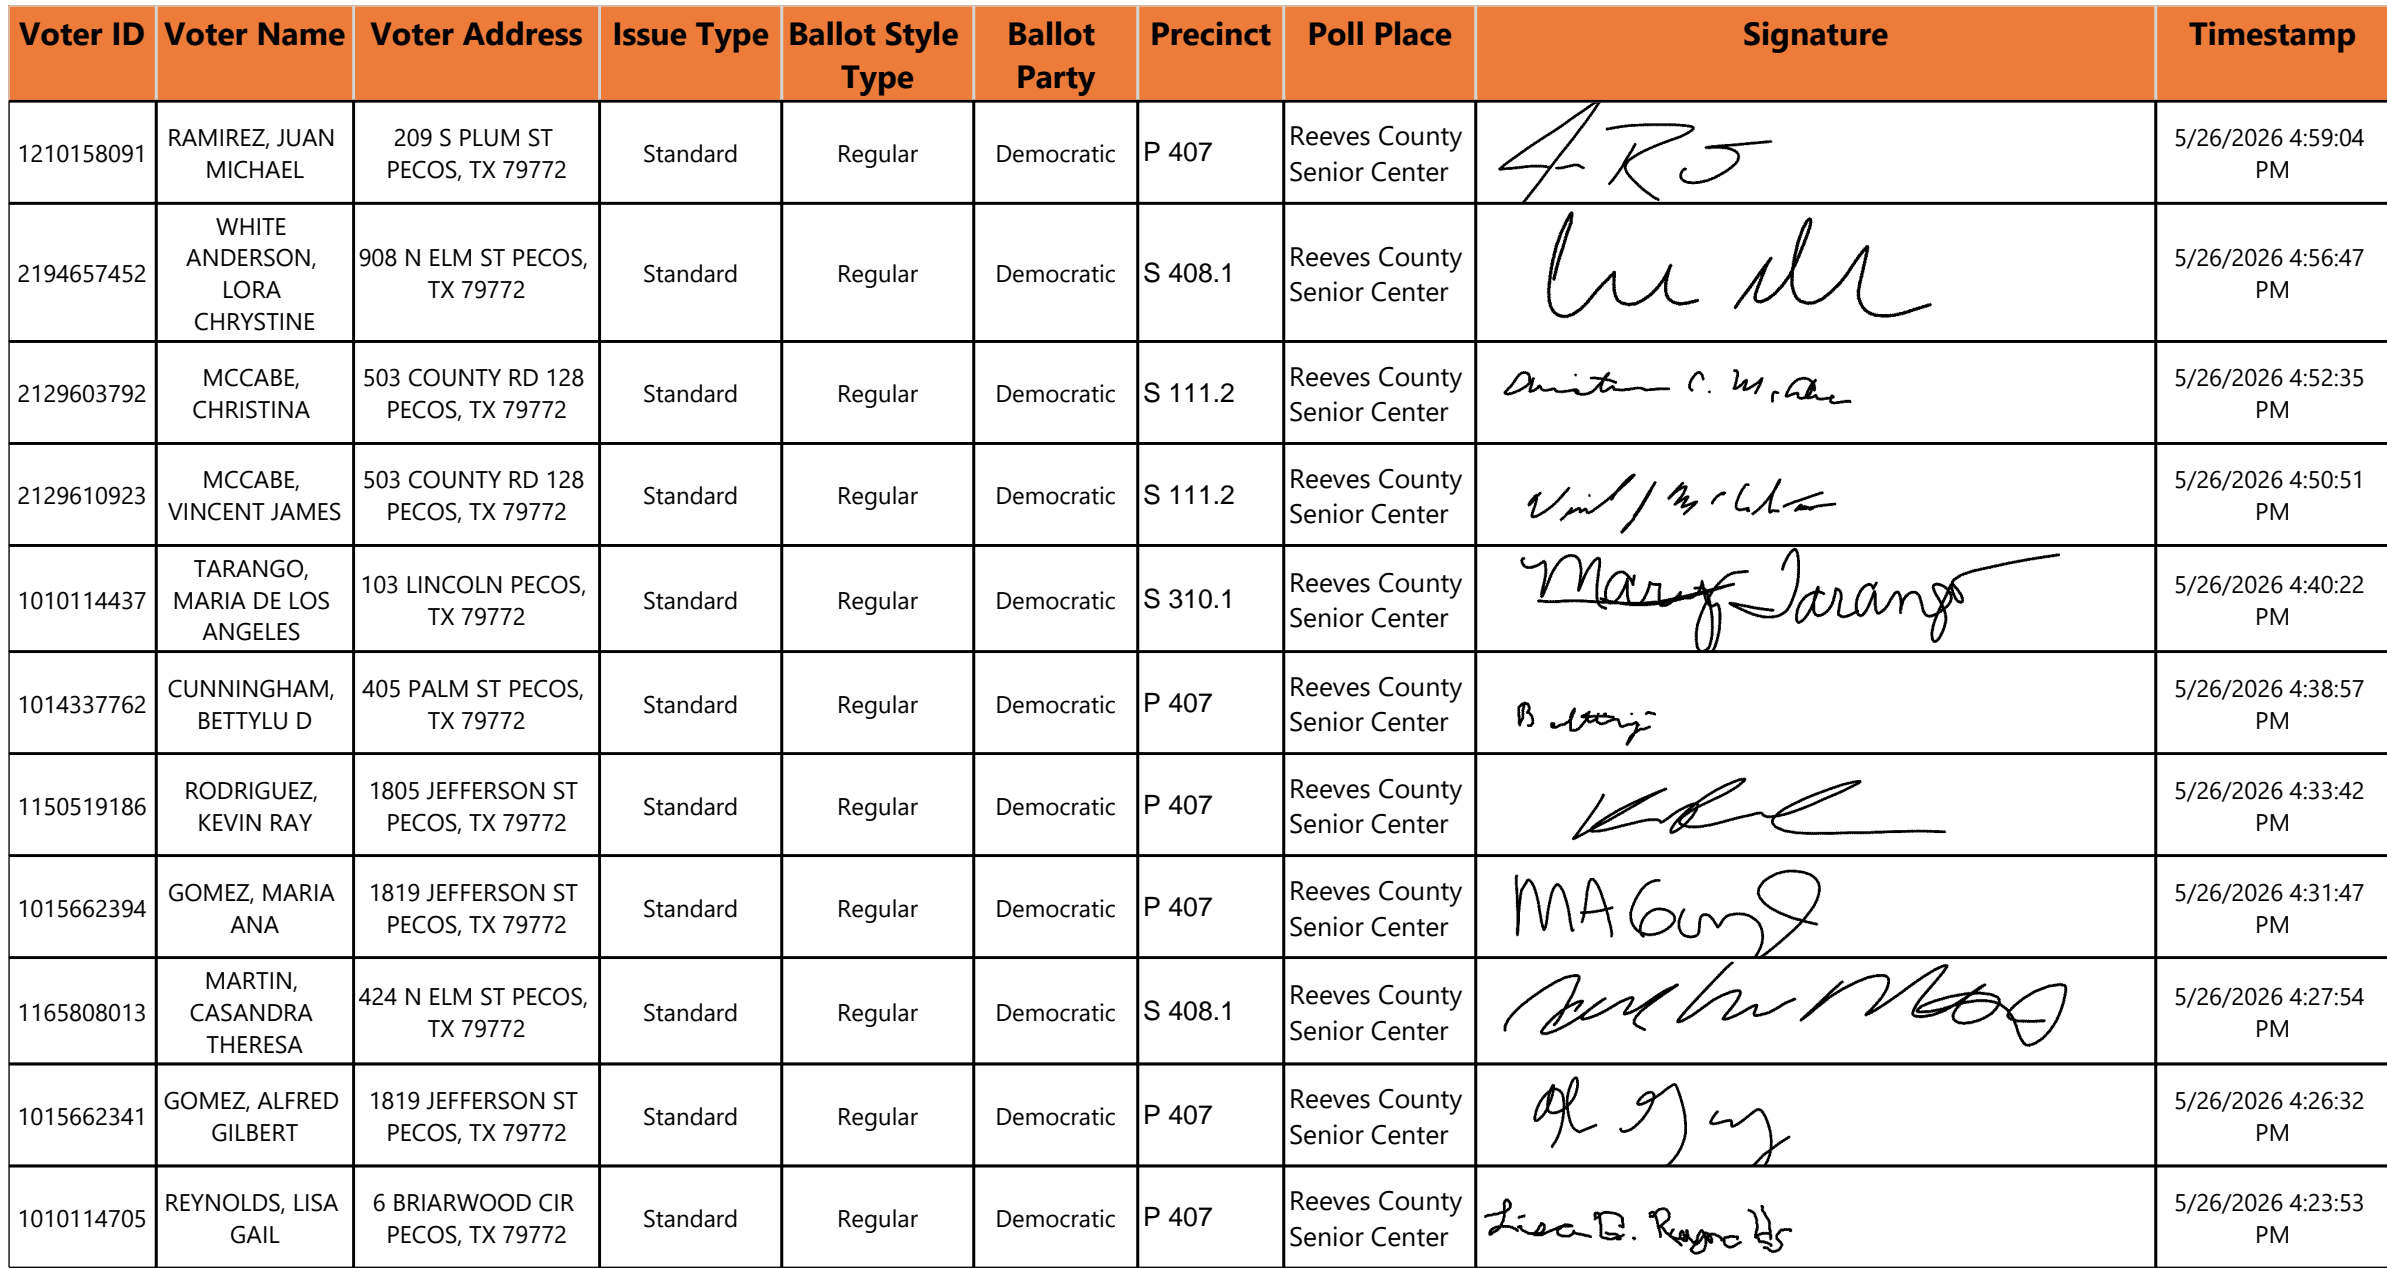 Voter ID Voter Name Voter Address Issue Type Ballot Style Type Ballot Party Precinct Poll Place Signature Timestamp
1210158091 RAMIREZ, JUAN MICHAEL 209 S PLUM ST PECOS, TX 79772 Standard Regular Democratic P 407 Reeves County Senior Center 5/26/2026 4:59:04 PM
2194657452 WHITE ANDERSON, LORA CHRYSTINE 908 N ELM ST PECOS, TX 79772 Standard Regular Democratic S 408.1 Reeves County Senior Center 5/26/2026 4:56:47 PM
2129603792 MCCABE, CHRISTINA 503 COUNTY RD 128 PECOS, TX 79772 Standard Regular Democratic S 111.2 Reeves County Senior Center 5/26/2026 4:52:35 PM
2129610923 MCCABE, VINCENT JAMES 503 COUNTY RD 128 PECOS, TX 79772 Standard Regular Democratic S 111.2 Reeves County Senior Center 5/26/2026 4:50:51 PM
1010114437 TARANGO, MARIA DE LOS ANGELES 103 LINCOLN PECOS, TX 79772 Standard Regular Democratic S 310.1 Reeves County Senior Center Mary Tarango 5/26/2026 4:40:22 PM
1014337762 CUNNINGHAM, BETTYLU D 405 PALM ST PECOS, TX 79772 Standard Regular Democratic P 407 Reeves County Senior Center 5/26/2026 4:38:57 PM
1150519186 RODRIGUEZ, KEVIN RAY 1805 JEFFERSON ST PECOS, TX 79772 Standard Regular Democratic P 407 Reeves County Senior Center 5/26/2026 4:33:42 PM
1015662394 GOMEZ, MARIA ANA 1819 JEFFERSON ST PECOS, TX 79772 Standard Regular Democratic P 407 Reeves County Senior Center 5/26/2026 4:31:47 PM
1165808013 MARTIN, CASANDRA THERESA 424 N ELM ST PECOS, TX 79772 Standard Regular Democratic S 408.1 Reeves County Senior Center 5/26/2026 4:27:54 PM
1015662341 GOMEZ, ALFRED GILBERT 1819 JEFFERSON ST PECOS, TX 79772 Standard Regular Democratic P 407 Reeves County Senior Center 5/26/2026 4:26:32 PM
1010114705 REYNOLDS, LISA GAIL 6 BRIARWOOD CIR PECOS, TX 79772 Standard Regular Democratic P 407 Reeves County Senior Center Lisa G. Reynolds 5/26/2026 4:23:53 PM